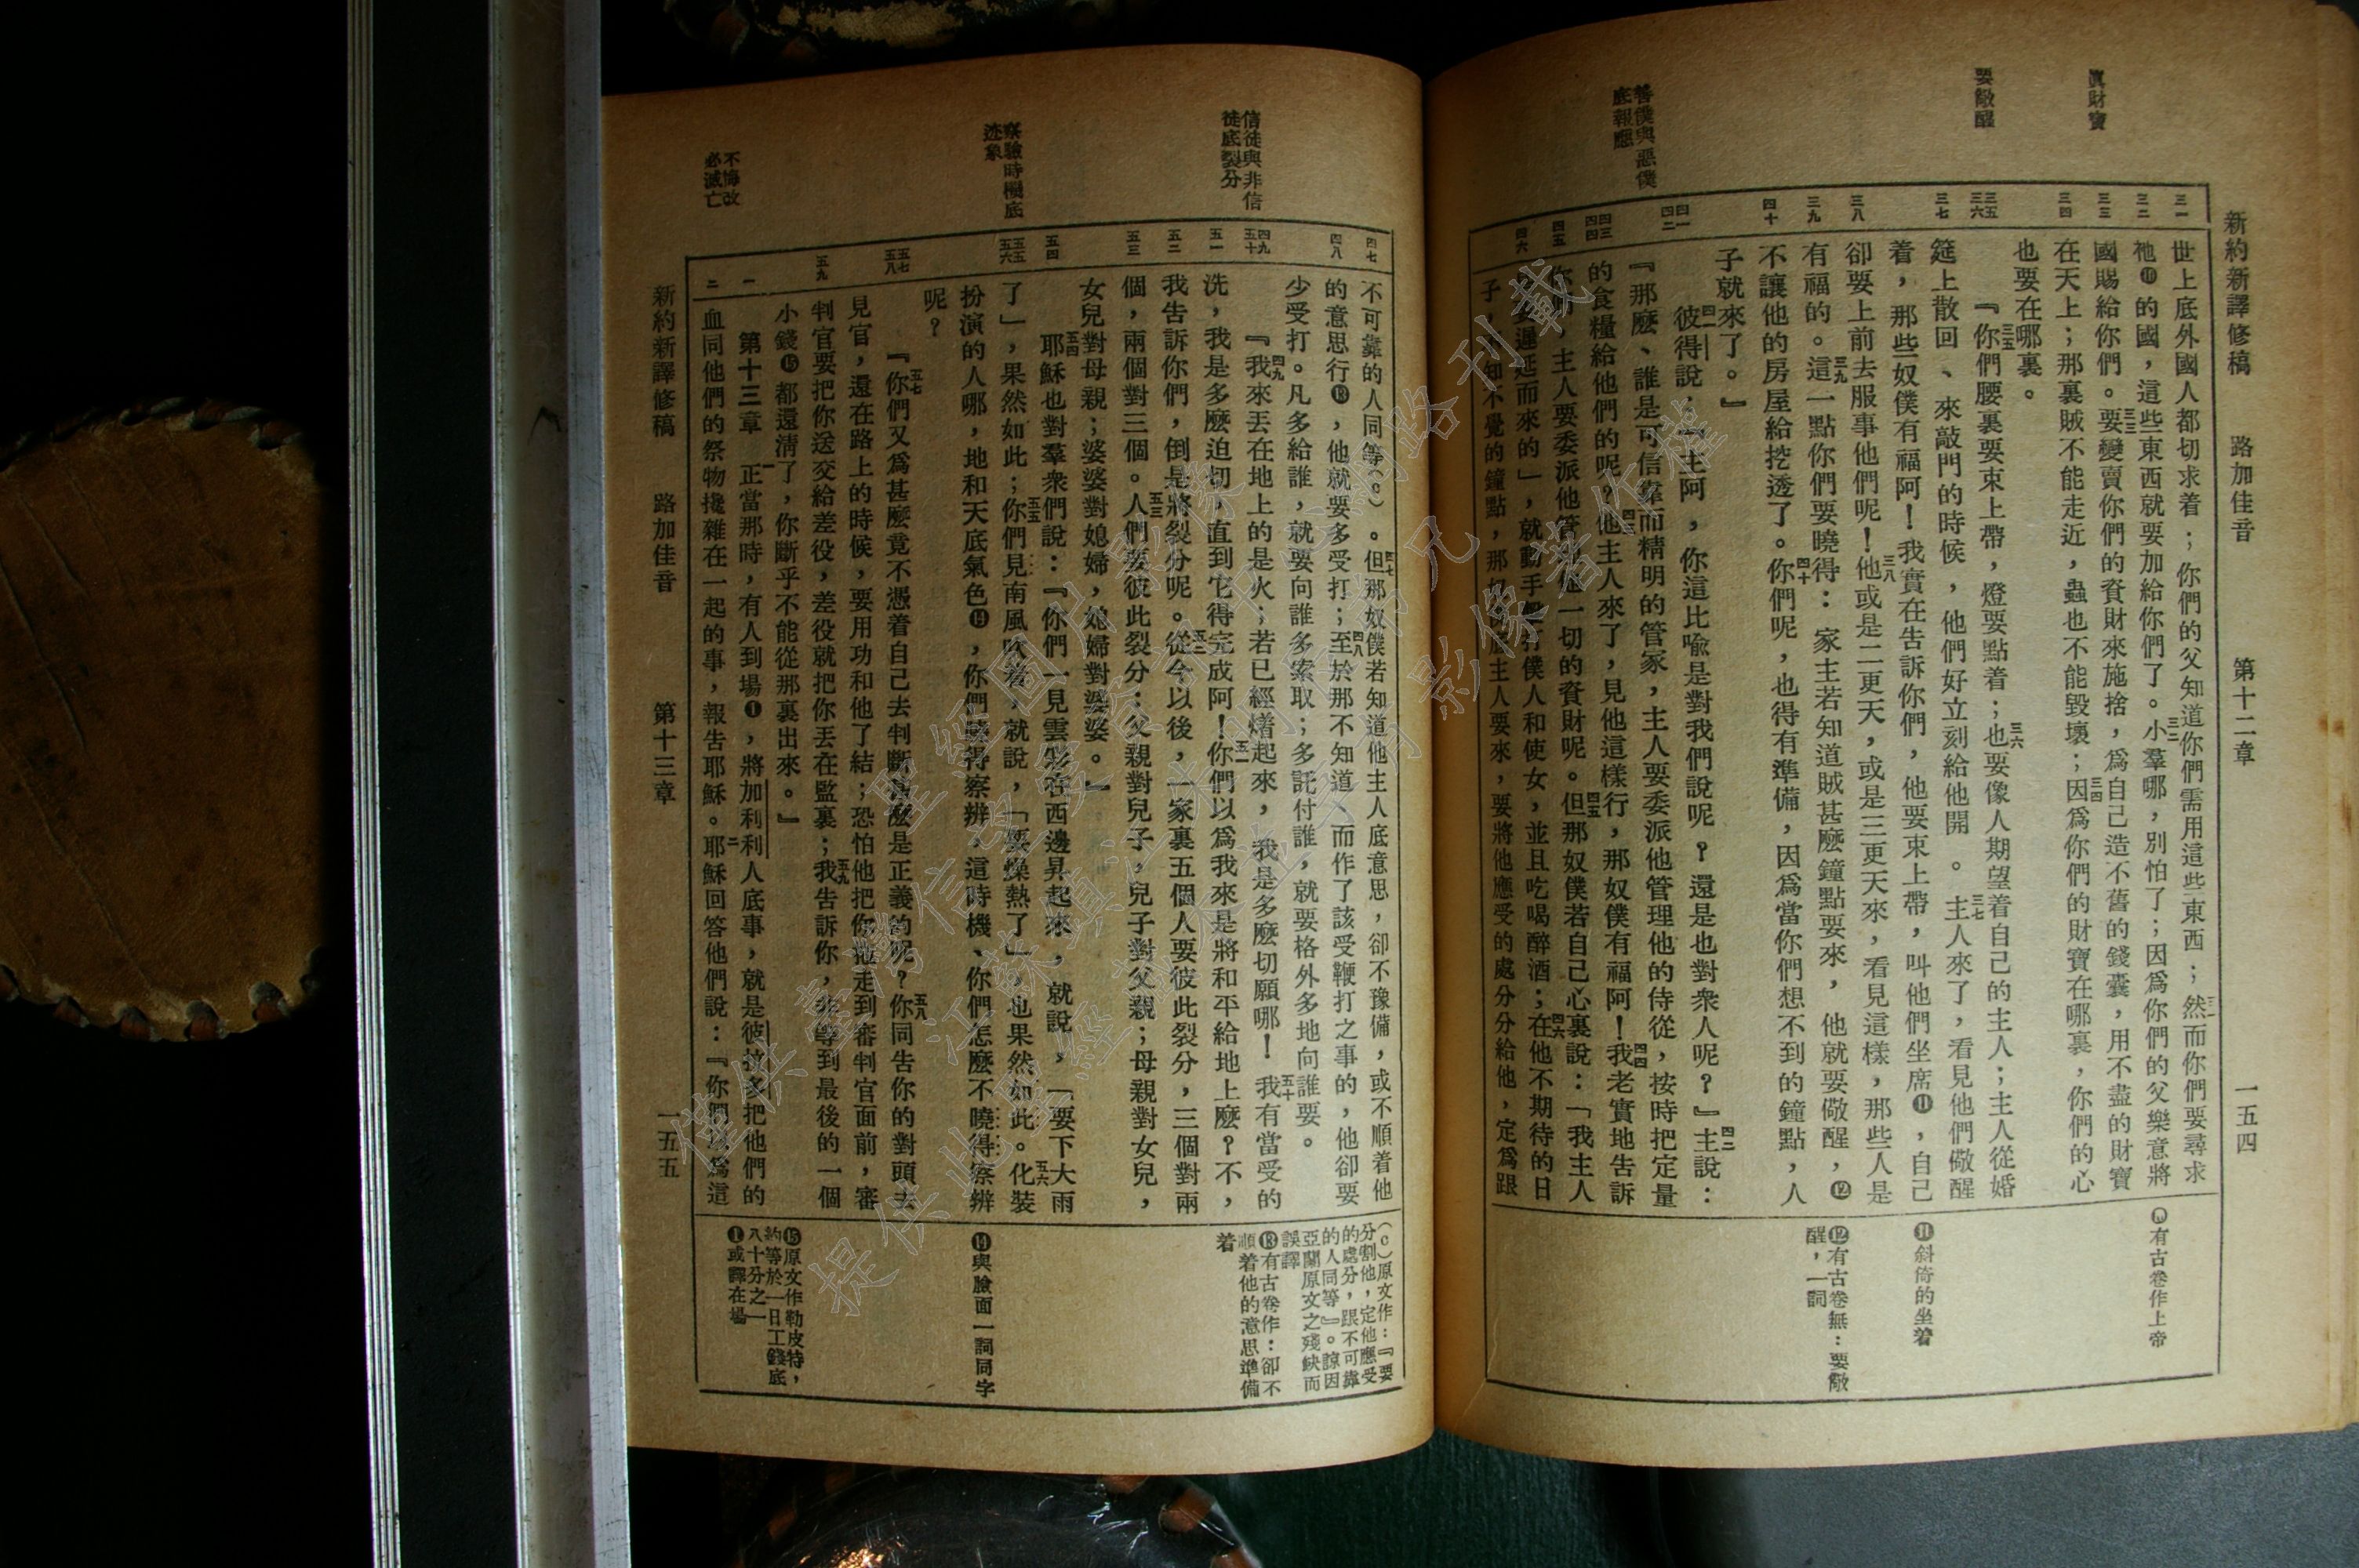 新約新譯修稿　路加佳音　第十二章　一五四
眞財寶
要儆醒
善僕與惡僕
底報應
三一
三二
三三
三四
三五
三六
三七
三八
三九
四十
四一
四二
四三
四四
四五
四六
世上底外國人都切求着；你們的父知道你們需用這些東西；三一然而你們要尋求
祂❿的國，這些東西就要加給你們了。三二小羣哪，別怕了；因爲你們的父樂意將
國賜給你們。三三要變賣你們的資財來施捨，爲自己造不舊的錢囊，用不盡的財寶
在天上；那裏賊不能走近，蟲也不能毀壞；三四因爲你們的財寶在哪裏，你們的心
也要在哪裏。
『三五你們腰裏要束上帶，燈要點着；三六也要像人期望着自己的主人；主人從婚
筵上散回、來敲門的時候，他們好立刻給他開。三七主人來了，看見他們儆醒
着，那些奴僕有福阿！我實在告訴你們，他要束上帶，叫他們坐席⓫，自己
卻要上前去服事他們呢！三八他或是二更天，或是三更天來，看見這樣，那些人是
有福的。三九這一點你們要曉得：家主若知道賊甚麼鐘點要來，他就要儆醒，⓬
不讓他的房屋給挖透了。四十你們呢，也得有準備，因爲當你們想不到的鐘點，人
子就來了。』
四一彼得說，『主阿，你這比喻是對我們說呢？還是也對衆人呢？』四二主說：
『那麼、誰是可信靠而精明的管家，主人要委派他管理他的侍從，按時把定量
的食糧給他們的呢？四三他主人來了，見他這樣行，那奴僕有福阿！四四我老實地告訴
你們，主人要委派他管 一切的資財呢。四五但那奴僕若自己心裏說：「我主人
 遲延而來的」，就動手 打僕人和使女，並且吃喝醉酒；四六在他不期待的日
子， 知不覺的鐘點，那奴 底主人要來，要將他應受的處分分給他，定爲跟
❿有古卷作上帝
⓫斜倚的坐着
⓬有古卷無：要儆
醒，一詞
信徒與非信
徒底裂分
察驗時機底
迹象
不悔改
必滅亡
四七
四八
四九
五十
五一
五二
五三
五四
五五
五六
五七
五八
五九
一
二
不可靠的人同等(c)。四七但那奴僕若知道他主人底意思，卻不豫備，或不順着他
的意思行⓭，他就要多受打；四八至於那不知道、而作了該受鞭打之事的，他卻要
少受打。凡多給誰，就要向誰多索取；多託付誰，就要格外多地向誰要。
『四九我來丟在地上的是火；若已經㸌起來，我是多麼切願哪！五十我有當受的
洗，我是多麼迫切，直到它得完成阿！五一你們以爲我來是將和平給地上麼？不，
我告訴你們，倒是將裂分呢。五二從今以後，一家裏五個人要彼此裂分，三個對兩
個，兩個對三個。五三人們要彼此裂分：父親對兒子，兒子對父親；母親對女兒，
女兒對母親；婆婆對媳婦，媳婦對婆婆。』
五四耶穌也對羣衆們說：『你們一見雲彩在西邊昇起來，就說，「要下大雨
了」，果然如此；五五你們見南風吹着，就說，「要燥熱了」，也果然如此。五六化裝
扮演的人哪，地和天底氣色⓮，你們曉得察辨，這時機、你們怎麼不曉得察辨
呢？
『五七你們又爲甚麼竟不憑着自己去判斷甚麼是正義的呢？五八你同告你的對頭去
見官，還在路上的時候，要用功和他了結；恐怕他把你拖走到審判官面前，審
判官要把你送交給差役，差役就把你丟在監裏；五九我告訴你，非等到最後的一個
小錢⓯都還清了，你斷乎不能從那裏出來。』
第十三章　一正當那時，有人到場❶，將加利利人底事，就是彼拉多把他們的
血同他們的祭物攙雜在一起的事，報告耶穌。二耶穌回答他們說：『你們以爲這
(c)原文作：『要
分割他，定他應受
的處分，跟不可靠
的人同等』。諒因
亞蘭原文之殘缺而
誤譯
⓭有古卷作：卻不
順着他的意思準備
着
⓮與臉面一詞同字
⓯原文作勒皮特，
約等於一日工錢底
八十分之一
❶或譯在場
新約新譯修稿　路加佳音　第十三章　一五五